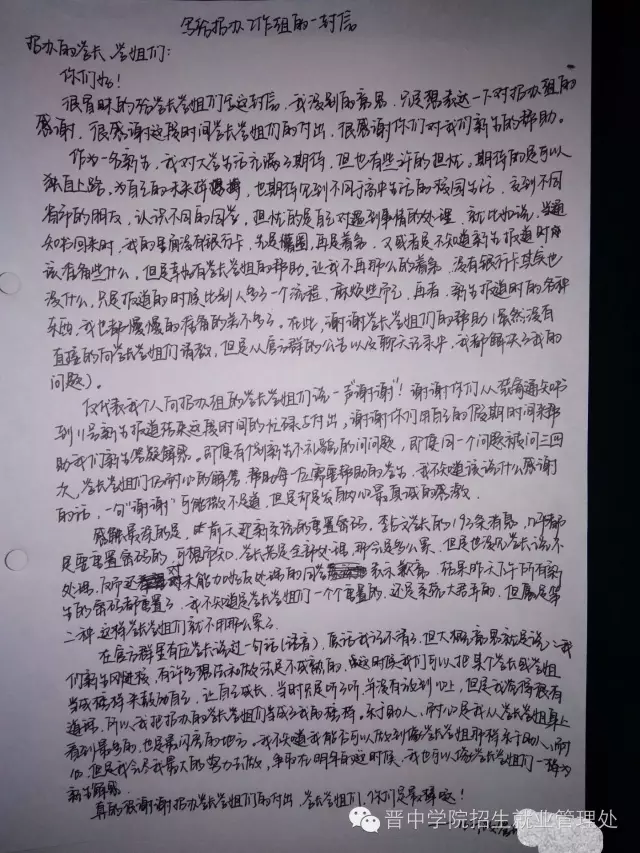 写给招办工作组的一封信
招办的学长、学姐们：
你们好！
很冒昧的给学长学姐们写这封信，我没别的意思，只是想表达一下对招办组的
感谢，很感谢这段时间学长学姐们的付出，很感谢你们对我们新生的帮助。
作为一名新生，我对大学生活充满了期待，但也有些许的担忧。期待的是可以
独自上路，为自己的未来，也期待见到不同于高中生活的校园生活，交到不同
省市的朋友，认识不同的同学，担忧的是自己对遇到事情的处理，就比如说，当通
知书回来时，我的里面没有银行卡，先是，再是着急，又或者是不知道新生报道时
该准备些什么，但是幸好有学长学姐的帮助，让我不再那么的着急，没有银行卡其实也
没什么，只是报道的时候比别人多了一个流程，麻烦些而已，再者，新生报道时的各种
东西，我也都慢慢的准备的差不多了。在此，谢谢学长学姐们的帮助（虽然没有
直接的向学长学姐们请教，但是从官方群的公告以及聊天记录中，我都解决了我的
问题）。
仅代表我个人向招办组的学长学姐们说一声“谢谢”！谢谢你们从录取通知书
到11号新生报道结束这段时间的忙碌与付出，谢谢你们用自己的假期时间来帮
助我们新生答疑解惑。即便有个别新生不礼貌的问问题，即便同一个问题被问三四
次，学长学姐们仍耐心的解答，帮助每一位需要帮助的学生，我不知道该说什么感谢
的话，一句“谢谢”可能微不足道，但是却是发自内心最真诚的感激。
感触最深的是，前天迎新系统的重置密码，学长的193条消息，几乎都
是要重置密码的，可想而知，学长若是全部处理，那会是多么累，但是也没见学长说不
处理，反而还对未能加好友处理的同学表示歉意，结果昨天下午所有新
生的密码都重置了，我不知道是学长学姐们一个个重置的，还是系统大君弄的，但愿是第
二种，这样学长学姐们就不用那么累了。
在官方群里有位学长说过一句话（语音），原话我记不清了，但大概意思就是说：我
们新生刚进校，有许多想法和做法是不成熟的，这时候我们可以把某个学长或学姐
当成榜样来鼓励自己，让自己成长，当时只是听了听，并没有放到心上，但是我觉得很有
道理，所以，我把招办的学长学姐们当成了我的榜样。乐于助人，耐心是我从学长学姐身上
看到最多的，也是最闪亮的地方。我不知道我能否可以做到像学长学姐那样乐于助人、耐
心，但是我会尽我最大的努力去做，争取在明年的这时候，我也可以像学长学姐们一样为
新生解惑。
真的很谢谢招办学长学姐们的付出，学长学姐们，你们是最棒哒！
晋中学院招生就业管理处